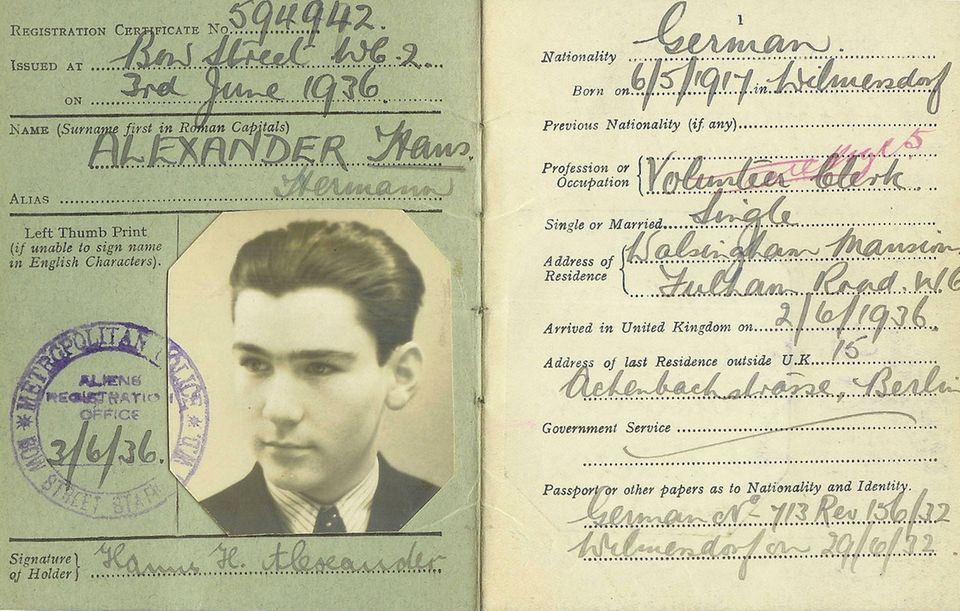 REGISTRATION CERTIFICATE No. 594942.
ISSUED AT Bow Street W.C.2.
ON 3rd June 1936.
NAME (Surname first in Roman Capitals)
ALEXANDER Hans.
Hermann
ALIAS
Left Thumb Print
(if unable to sign name
in English Characters).
METROPOLITAN POLICE
ALIENS
REGISTRATION
OFFICE
3/6/36.
BOW STREET
Signature
of Holder} Hanns H. Alexander.
1
Nationality German.
Born on 6/5/1917 in Wilmersdorf
Previous Nationality (if any)
Profession or
Occupation { Volunteer Clerk.
Single or Married Single
Address of
Residence { Walsingham Mansion
Fulham Road.
Arrived in United Kingdom on 2/6/1936.
Address of last Residence outside U.K. 15
Achenbachstrasse, Berlin
Government Service
Passport or other papers as to Nationality and Identity.
German No 713 Rev 156/32
Wilmersdorf on 29/6/32.